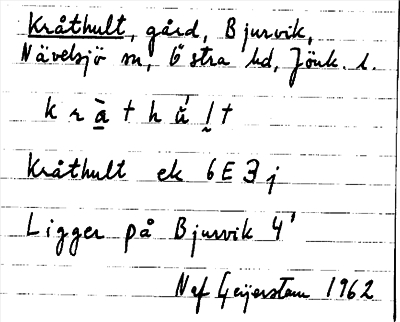 Kråthult, gård, Bjurvik,
Nävelsjö sn, Östra hd, Jönk. l.
k r à t h ú l t
Kråthult ek 6E3j
Ligger på Bjurvik 4¹
Naf Geijerstam 1962